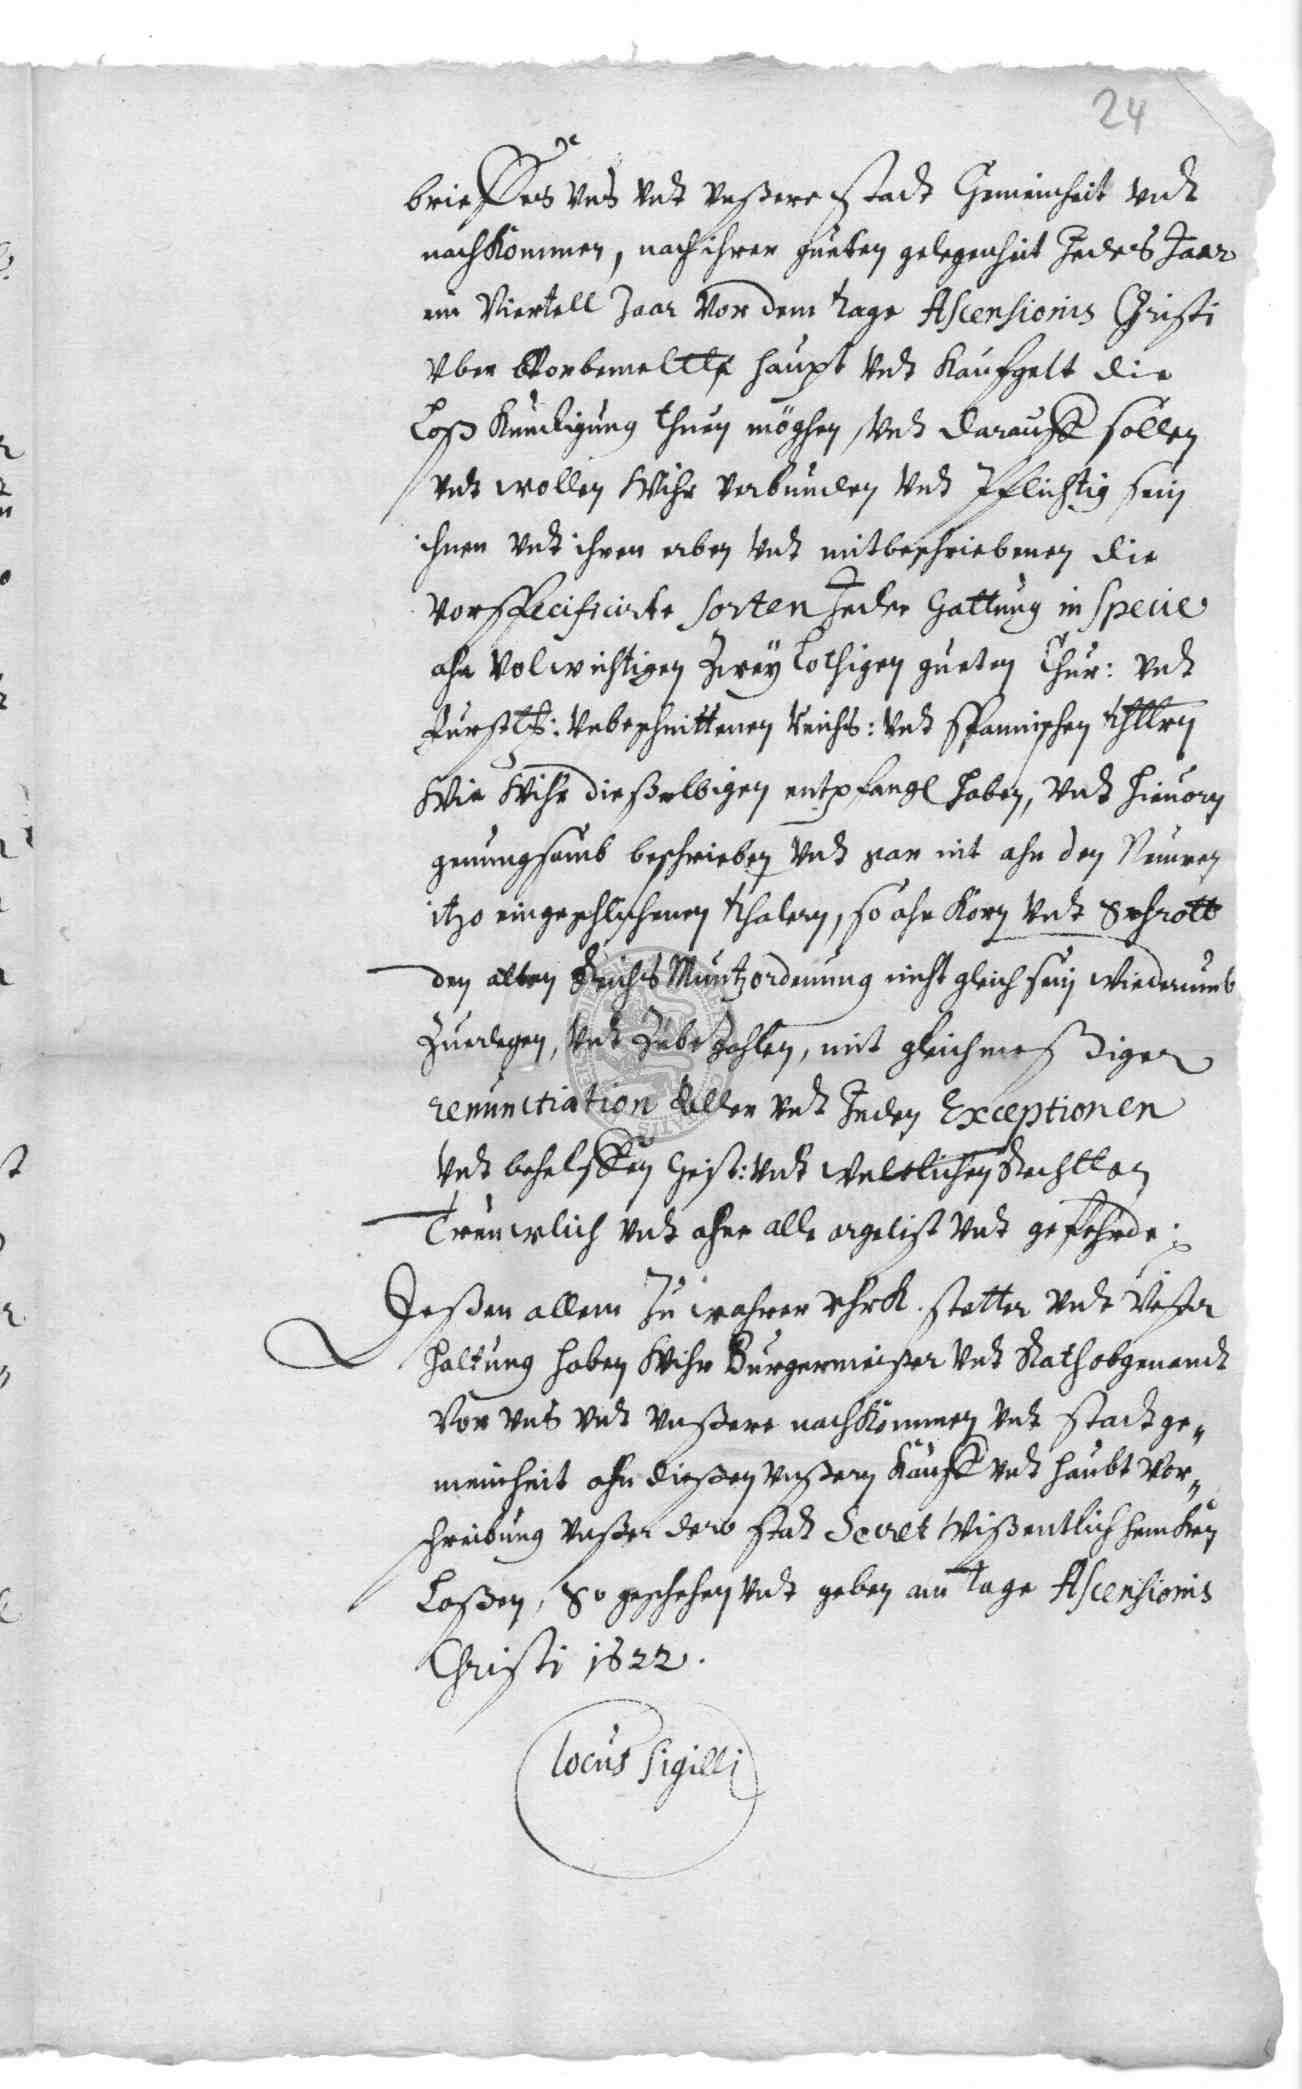 24
brieffes vns vndt vnßere stadt Gemeinheit vndt
nachkommen, nach ihrer gueten gelegenheit Jedes Jaar
ein Viertell Jaar Vor dem tage Ascensionis Christi
vber Vorbemeltte haupt vndt Kaufgelt die
Loß Kundigung thuen möghen, vndt darauff sollen
vndt wollen Wihr verbunden vndt Pflichtig sein
ihnen vndt ihren erben vndt mitbeschriebenen die
Vorspecificirte Sorten Jeder Gattung in specie
ahn Volwichtigen Zwey Lothigen gueten Chur: vndt
Furstl: vnbeschnittenen Reichs: vndt spannischen thllrn
Wie Wihr dieselbigen entpfangl haben, vndt hieuorn
genungsamb beschrieben vndt gar nit ahn den Neuwen
itzo eingeschlichenen thalern, so ahn Korn vndt Schrott
den alten Reichs Muntzordenung nicht gleich sein wiederumb
Zuerlegen, vndt Zubezahlen, mit gleichmeßiger
renunctiation aller vndt Jeden Exceptionen
vndt behelffen Geist: vndt weltlichen Rechtten
Treuwlich vndt ahne alle argelist vndt gefehrde.
Deßen allem Zu wahrer vhrk. stetter vndt Vester
haltung haben Wihr Burgermeister vndt Rath obgenandt
Vor vns vndt vnßere nachkommen vndt stadt ge„
meinheit ahn dießen vnßern Kauff vndt haubt Vor„
schreibung vnßer dero stadt Secret Wißentlich hencken
Laßen, So geschehen vndt geben am tage Ascensionis
Christi 1622.
locus sigilli